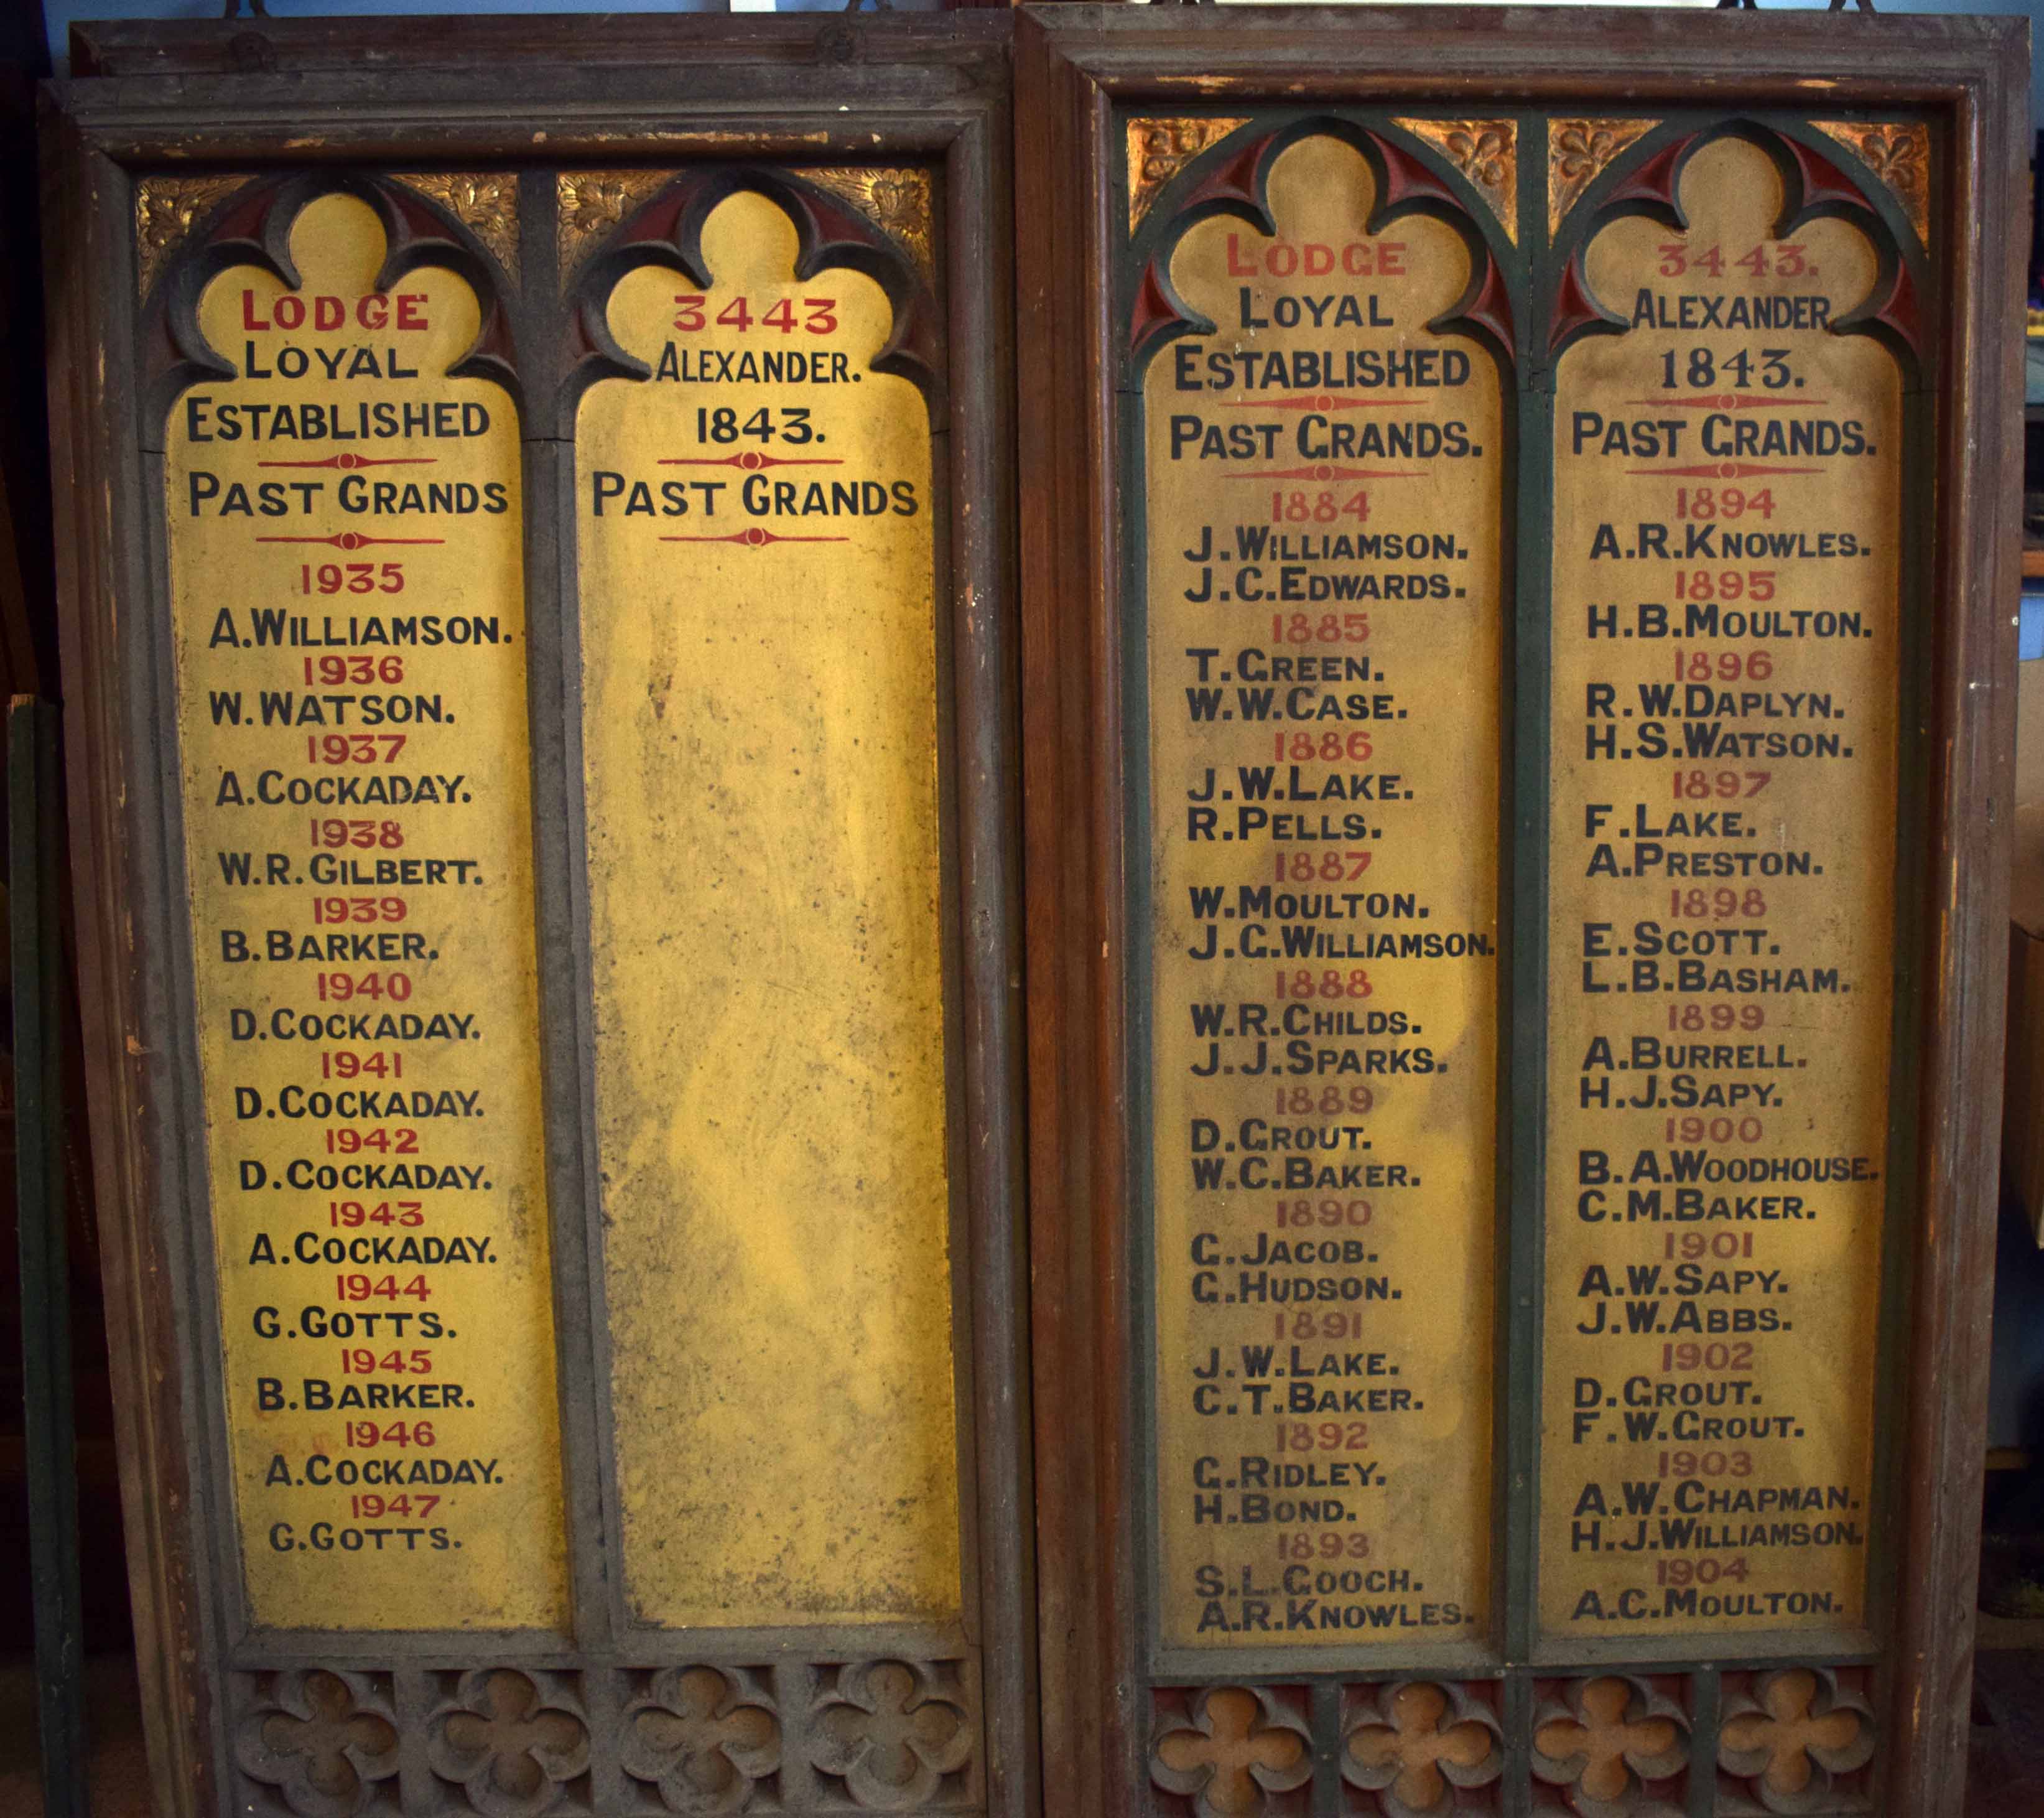 LODGE
LOYAL
ESTABLISHED
PAST GRANDS
1935
A.WILLIAMSON.
1936
W.WATSON.
1937
A.COCKADAY.
1938
W.R.GILBERT.
1939
B.BARKER.
1940
D.COCKADAY.
1941
D.COCKADAY.
1942
D.COCKADAY.
1943
A.COCKADAY.
1944
G.GOTTS.
1945
B.BARKER.
1946
A.COCKADAY.
1947
G.GOTTS.
3443
ALEXANDER.
1843.
PAST GRANDS
LODGE
LOYAL
ESTABLISHED
PAST GRANDS.
1884
J.WILLIAMSON.
J.C.EDWARDS.
1885
T.GREEN.
W.W.CASE.
1886
J.W.LAKE.
R.PELLS.
1887
W.MOULTON.
J.G.WILLIAMSON.
1888
W.R.CHILDS.
J.J.SPARKS.
1889
D.GROUT.
W.C.BAKER.
1890
G.JACOB.
G.HUDSON.
1891
J.W.LAKE.
C.T.BAKER.
1892
G.RIDLEY.
H.BOND.
1893
S.L.GOOCH.
A.R.KNOWLES.
3443.
ALEXANDER
1843.
PAST GRANDS.
1894
A.R.KNOWLES.
1895
H.B.MOULTON.
1896
R.W.DAPLYN.
H.S.WATSON.
1897
F.LAKE.
A.PRESTON.
1898
E.SCOTT.
L.B.BASHAM.
1899
A.BURRELL.
H.J.SAPY.
1900
B.A.WOODHOUSE.
C.M.BAKER.
1901
A.W.SAPY.
J.W.ABBS.
1902
D.GROUT.
F.W.GROUT.
1903
A.W.CHAPMAN.
H.J.WILLIAMSON.
1904
A.C.MOULTON.